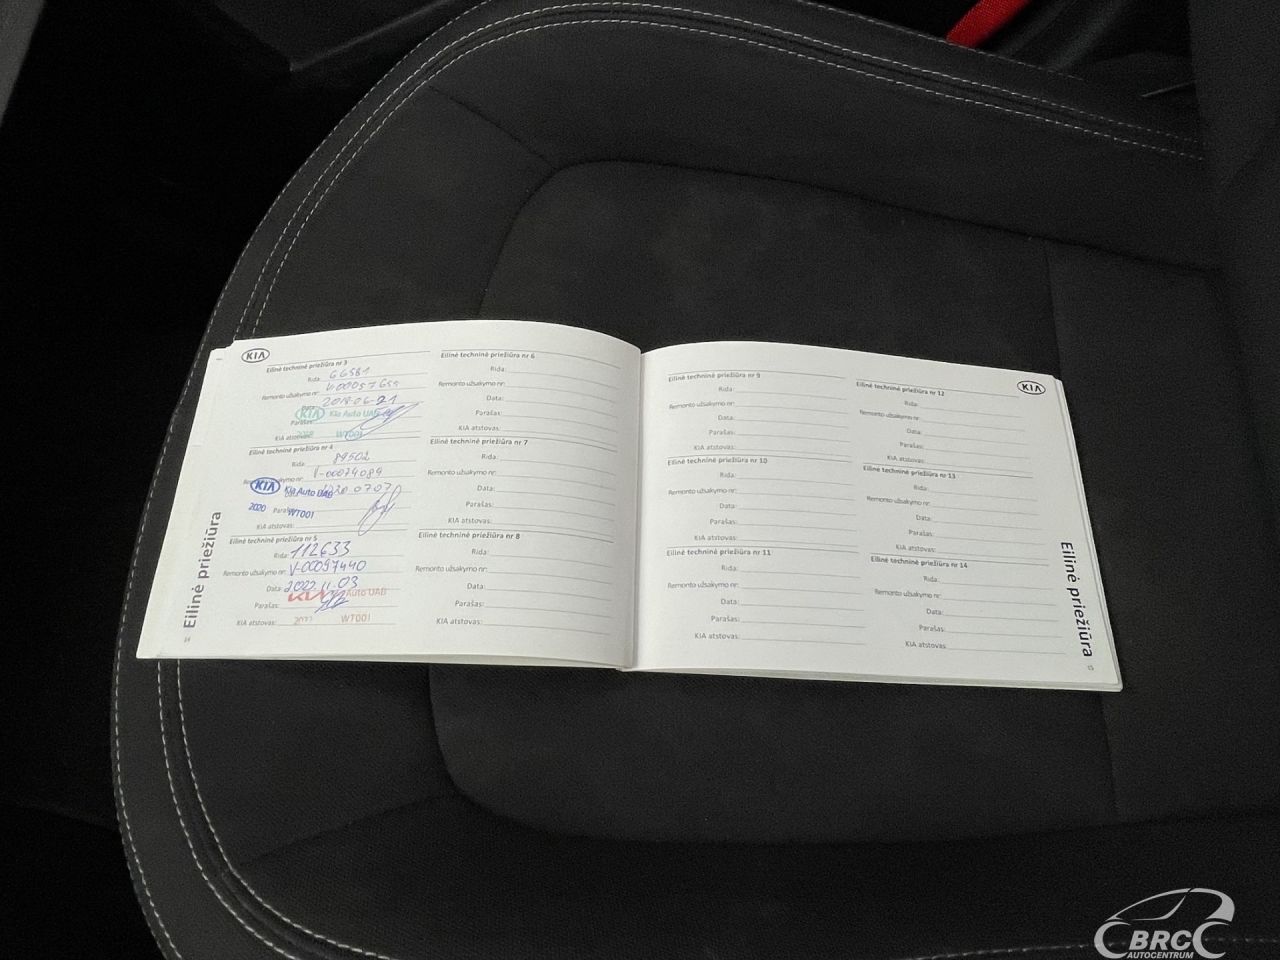 KIA
Eilinė techninė priežiūra nr 3
Rida: 66581
Remonto užsakymo nr: V-00057655
Data:
Parašas:
KIA Kia Auto UAB
KIA atstovas: WT001
Eilinė techninė priežiūra nr 4
Rida: 89502
V-00074089
KIA Kia Auto UAB
2020 WT001
KIA atstovas:
Eilinė techninė priežiūra nr 5
Rida: 112633
Remonto užsakymo nr: V-00097440
Data: 2022.11.03
Auto UAB
Parašas:
KIA atstovas: WT001
Eilinė priežiūra
14
Eilinė techninė priežiūra nr 6
Rida:
Remonto užsakymo nr:
Data:
Parašas:
KIA atstovas:
Eilinė techninė priežiūra nr 7
Rida:
Remonto užsakymo nr:
Data:
Parašas:
KIA atstovas:
Eilinė techninė priežiūra nr 8
Rida:
Remonto užsakymo nr:
Data:
Parašas:
KIA atstovas:
Eilinė techninė priežiūra nr 9
Rida:
Remonto užsakymo nr:
Data:
Parašas:
KIA atstovas:
Eilinė techninė priežiūra nr 10
Rida:
Remonto užsakymo nr:
Data:
Parašas:
KIA atstovas:
Eilinė techninė priežiūra nr 11
Rida:
Remonto užsakymo nr:
Data:
Parašas:
KIA atstovas:
KIA
Eilinė techninė priežiūra nr 12
Rida:
Remonto užsakymo nr:
Data:
Parašas:
KIA atstovas:
Eilinė techninė priežiūra nr 13
Rida:
Remonto užsakymo nr:
Data:
Parašas:
KIA atstovas:
Eilinė techninė priežiūra nr 14
Rida:
Remonto užsakymo nr:
Data:
Parašas:
KIA atstovas:
Eilinė priežiūra
15
BRC
AUTOCENTRUM